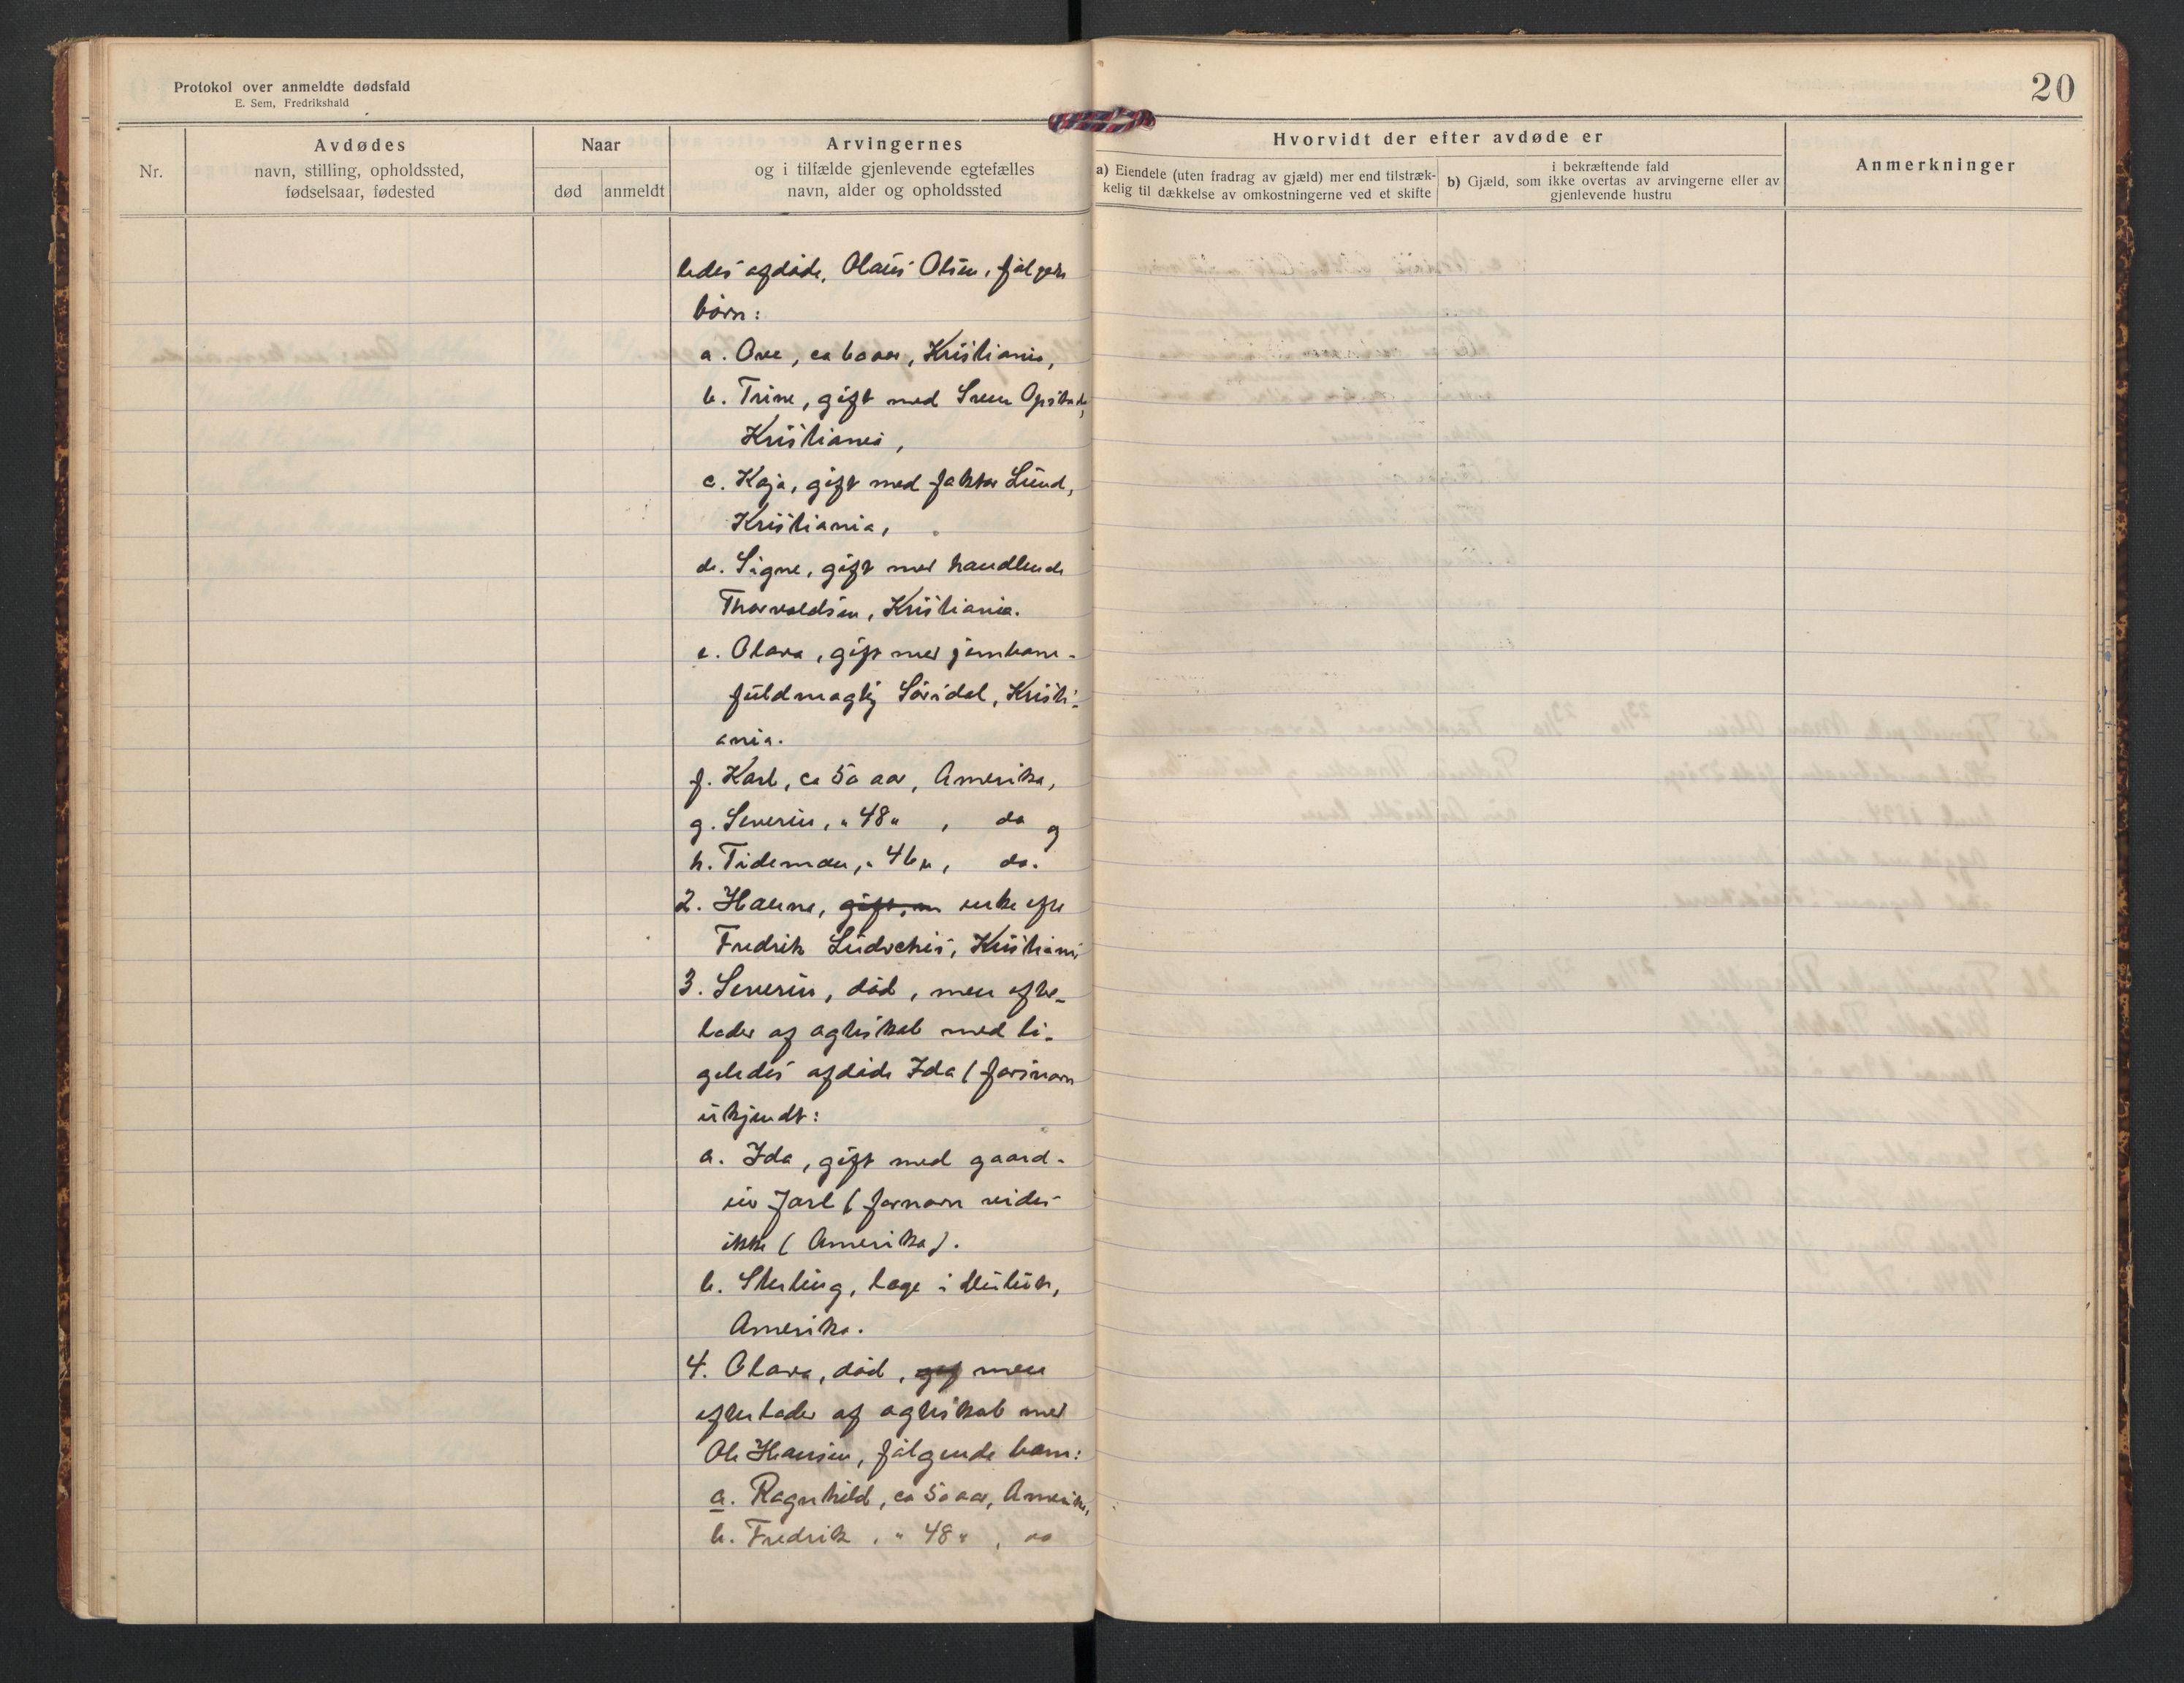 Protokol over anmeldte dødsfald
E. Sem, Fredrikshald
20
Nr.
Avdødes
navn, stilling, opholdssted,
fødselsaar, fødested
Naar
død
anmeldt
Arvingernes
og i tilfælde gjenlevende egtefælles
navn, alder og opholdssted
Hvorvidt der efter avdøde er
a) Eiendele (uten fradrag av gjæld) mer end tilstræk-
kelig til dækkelse av omkostningerne ved et skifte
i bekræftende fald
b) Gjæld, som ikke overtas av arvingerne eller av
gjenlevende hustru
Anmerkninger
ledes afdøde, Olaus Olsen, følgende
børn:
a. Ove, ca 60 aar, Kristiania,
b. Trine, gift med Sven Opstad,
Kristiania,
c. Kaja, gift med faktor Lund,
Kristiania,
d. Signe, gift med handlende
Thorvaldsen, Kristiania.
e. Olava, gift med jernbane-
fuldmægtig Sørdal, Kristi-
ania.
f. Karl, ca 50 aar, Amerika,
g. Severin, " 48 " , do og
h. Tideman, " 46 ", do.
2. Hanne, gift, enke efter
Fredrik Kristiania
3. Severin, død, men efter-
lader af ægteskab med li-
geledes afdøde Ida (farsnavn
ukjendt:
a. Ida, gift med gaard-
eier Jarl (fornavn vides
ikke (Amerika).
b. Sterling, læge i
Amerika.
4. Olava, død, gif men
efterlader af ægteskab med
Ole Hansen, følgende børn:
a. Ragnhild, ca 50 aar, Amerika,
b. Fredrik, " 48 " , do